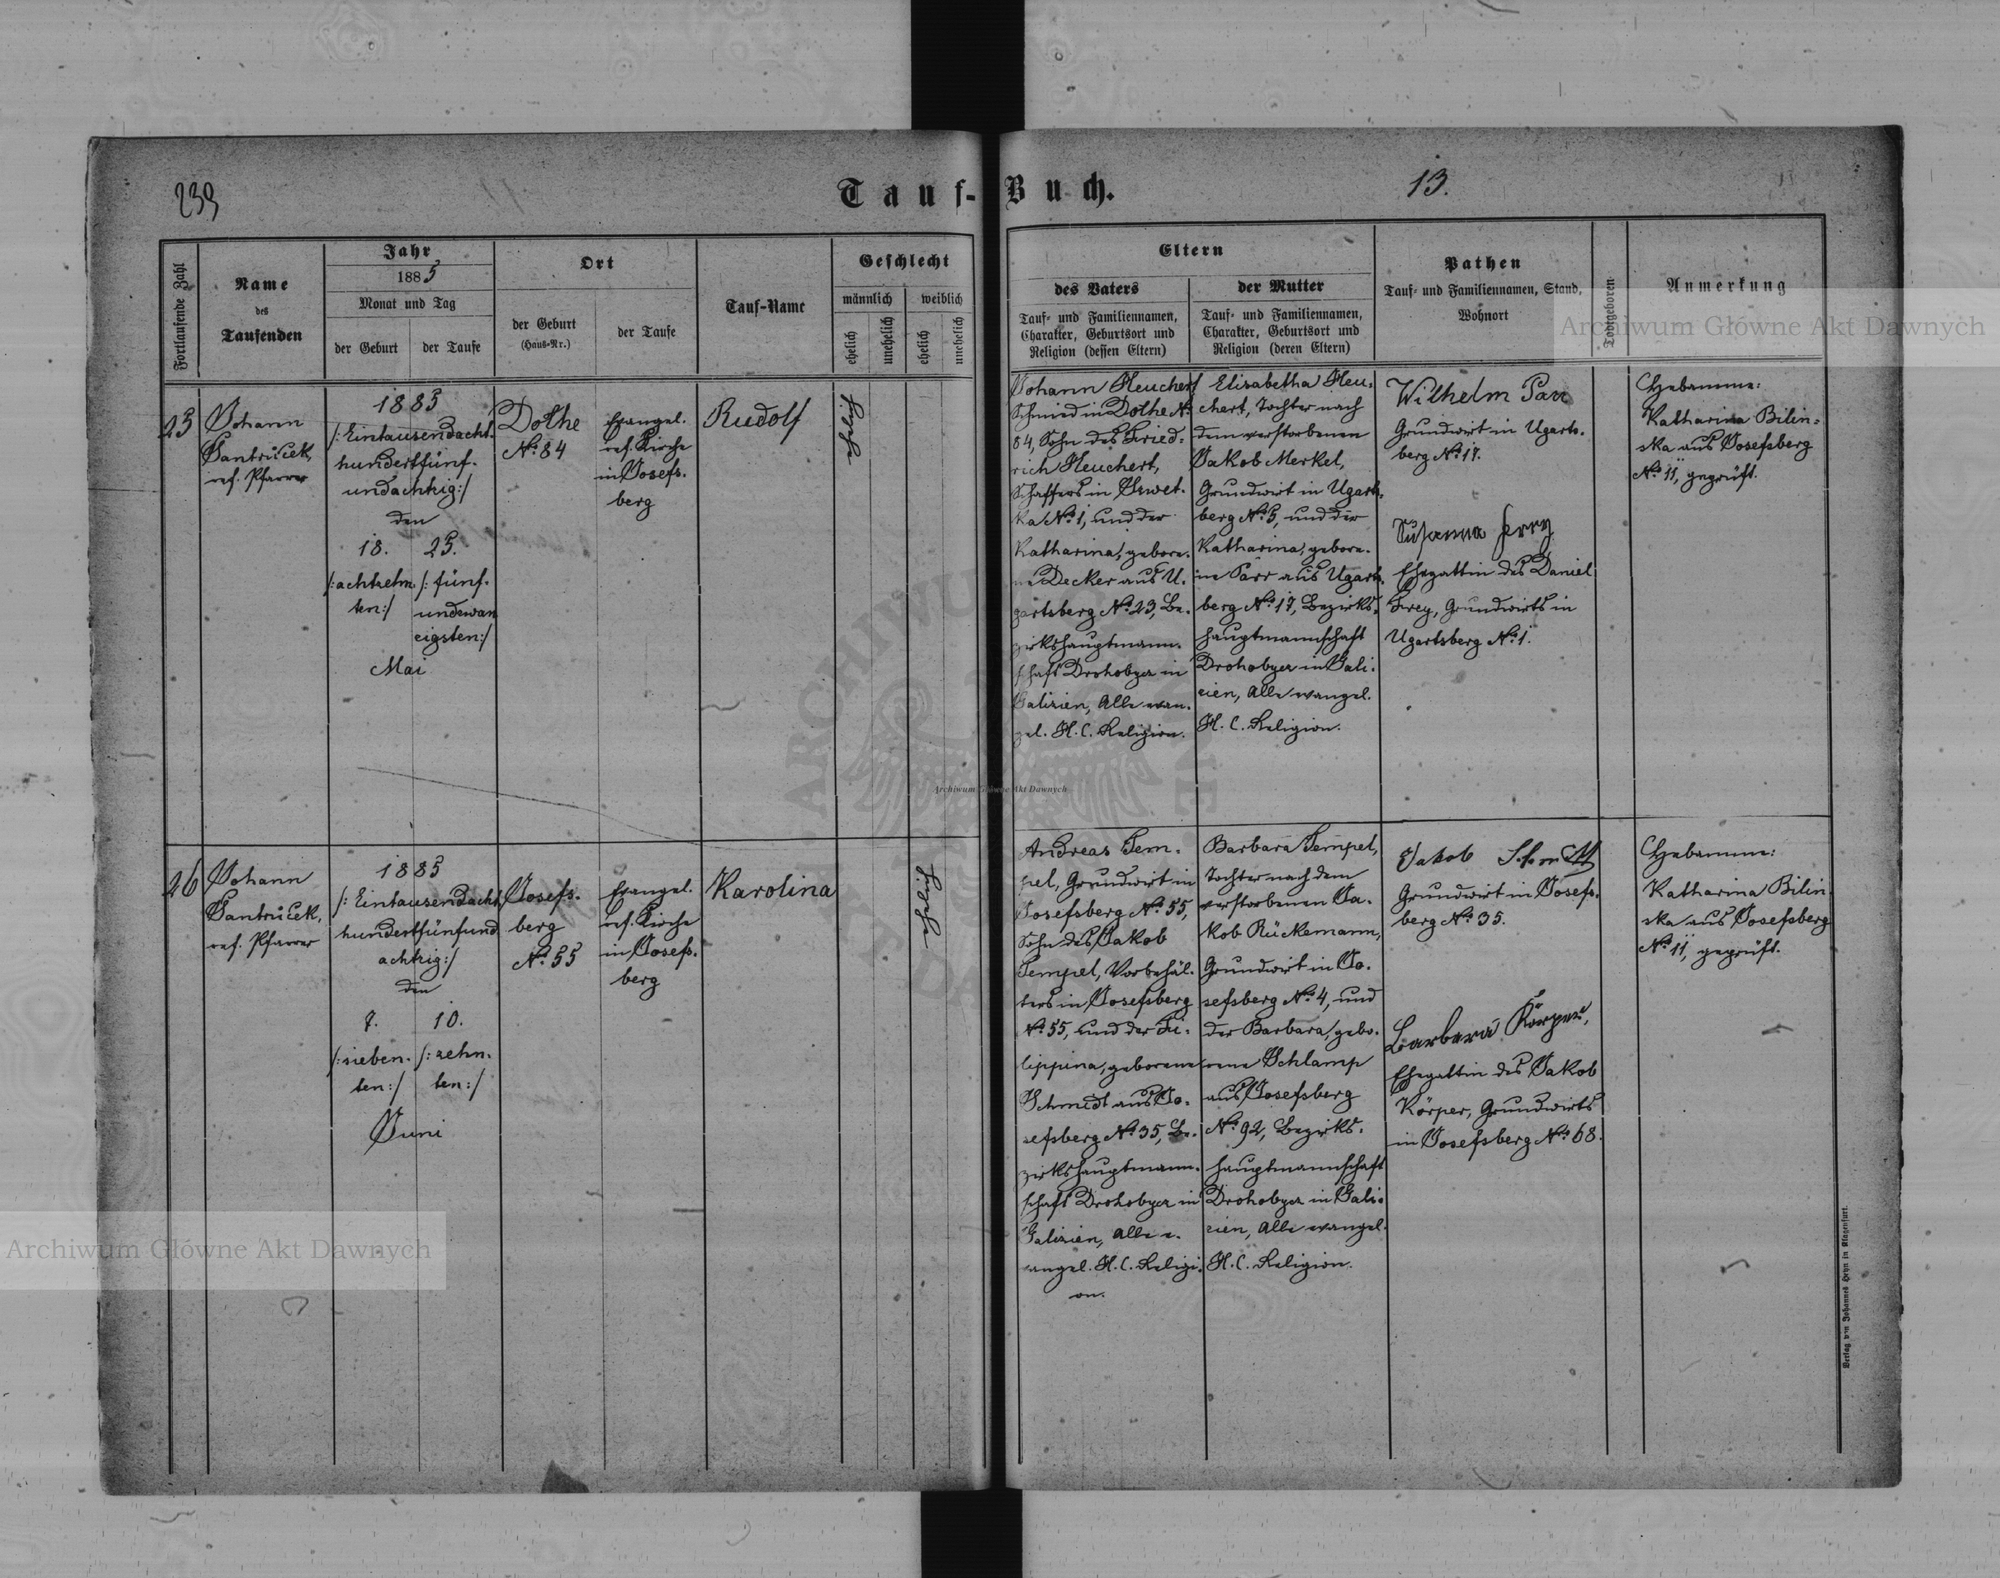 239
Tauf-Buch.
13.
Fortlaufende Zahl
Name
des
Taufenden
Jahr
1885
Monat und Tag
der Geburt
der Taufe
Ort
der Geburt
(Haus-Nr.)
der Taufe
Tauf-Name
Geschlecht
männlich
weiblich
ehelich
unehelich
ehelich
unehelich
Eltern
des Vaters
Tauf- und Familiennamen,
Charakter, Geburtsort und
Religion (dessen Eltern)
der Mutter
Tauf- und Familiennamen,
Charakter, Geburtsort und
Religion (deren Eltern)
Pathen
Tauf- und Familiennamen, Stand,
Wohnort
Todtgeboren
Anmerkung
25
Johann
Jantrůček,
ref. Pfarrer
1885
/:Eintausendacht-
hundertfünf-
undachtzig:/
den
18.
25.
/:achtzehn
ten:/
/:fünf-
undzwan
zigsten:/
Mai
Dolhe
№ 84
Evangel.
ref. Kirche
in Josefs-
berg
Rudolf
ehelich
Johann Heuchert
Schmied in Dolhe №
84, Sohn des Fried-
rich Heuchert,
Schaffers in
ka № 1, und der
Katharina, gebore-
ne Decker aus U-
gartsberg № 23, Be-
zirkshauptmann-
schaft Drohobycz in
Galizien, Alle evan-
gel. H. C. Religion.
Elisabetha Heu-
chert, Tochter nach
dem verstorbenen
Jakob Merkel,
Grundwirt in Ugarts-
berg № 5, und der
Katharina, gebore-
ne Parr aus Ugarts-
berg № 17, Bezirks-
hauptmannschaft
Drohobycz in Gali-
zien, Alle evangel.
H. C. Religion.
Wilhelm Parr
Grundwirt in Ugarts-
berg № 17.
Susanna Frey
Ehegattin des Daniel
Frey, Grundwirts in
Ugartsberg № 1.
Hebamme:
Katharina Bilin-
ska aus Josefsberg
№ 11, geprüft.
26
Johann
Jantrůček,
ref. Pfarrer
1885
/:Eintausendacht
hundertfünfund
achtzig:/
den
7.
10.
/:sieben-
ten:/
/:zehn-
ten:/
Juni
Josefs-
berg
№ 55
Evangel.
ref. Kirche
in Josefs-
berg
Karolina
ehelich
Andreas Tem-
pel, Grundwirt in
Josefsberg № 55,
Sohn des Jakob
Tempel, Vorbehäl-
ters in Josefsberg
№ 55, und der Fi-
lippina, geborene
Schmidt aus Jo-
sefsberg № 35, Be-
zirkshauptmann-
schaft Drohobycz in
Galizien, Alle e-
vangel. H. C. Religi-
on.
Barbara Tempel,
Tochter nach dem
verstorbenen Ja-
kob Rückemann,
Grundwirt in Jo-
sefsberg № 4, und
der Barbara, gebo-
rene Schlamp
aus Josefsberg
№ 92, Bezirks-
hauptmannschaft
Drohobycz in Gali-
zien, Alle evangel.
H. C. Religion.
Jakob Schmitt
Grundwirt in Josefs-
berg № 35.
Barbara Körper,
Ehegattin des Jakob
Körper, Grundwirts
in Josefsberg № 68.
Hebamme:
Katharina Bilin
ska aus Josefsberg
№ 11, geprüft.
Verlag von Johannes Heyn in Klagenfurt.
Archiwum Główne Akt Dawnych
Archiwum Główne Akt Dawnych
Archiwum Główne Akt Dawnych